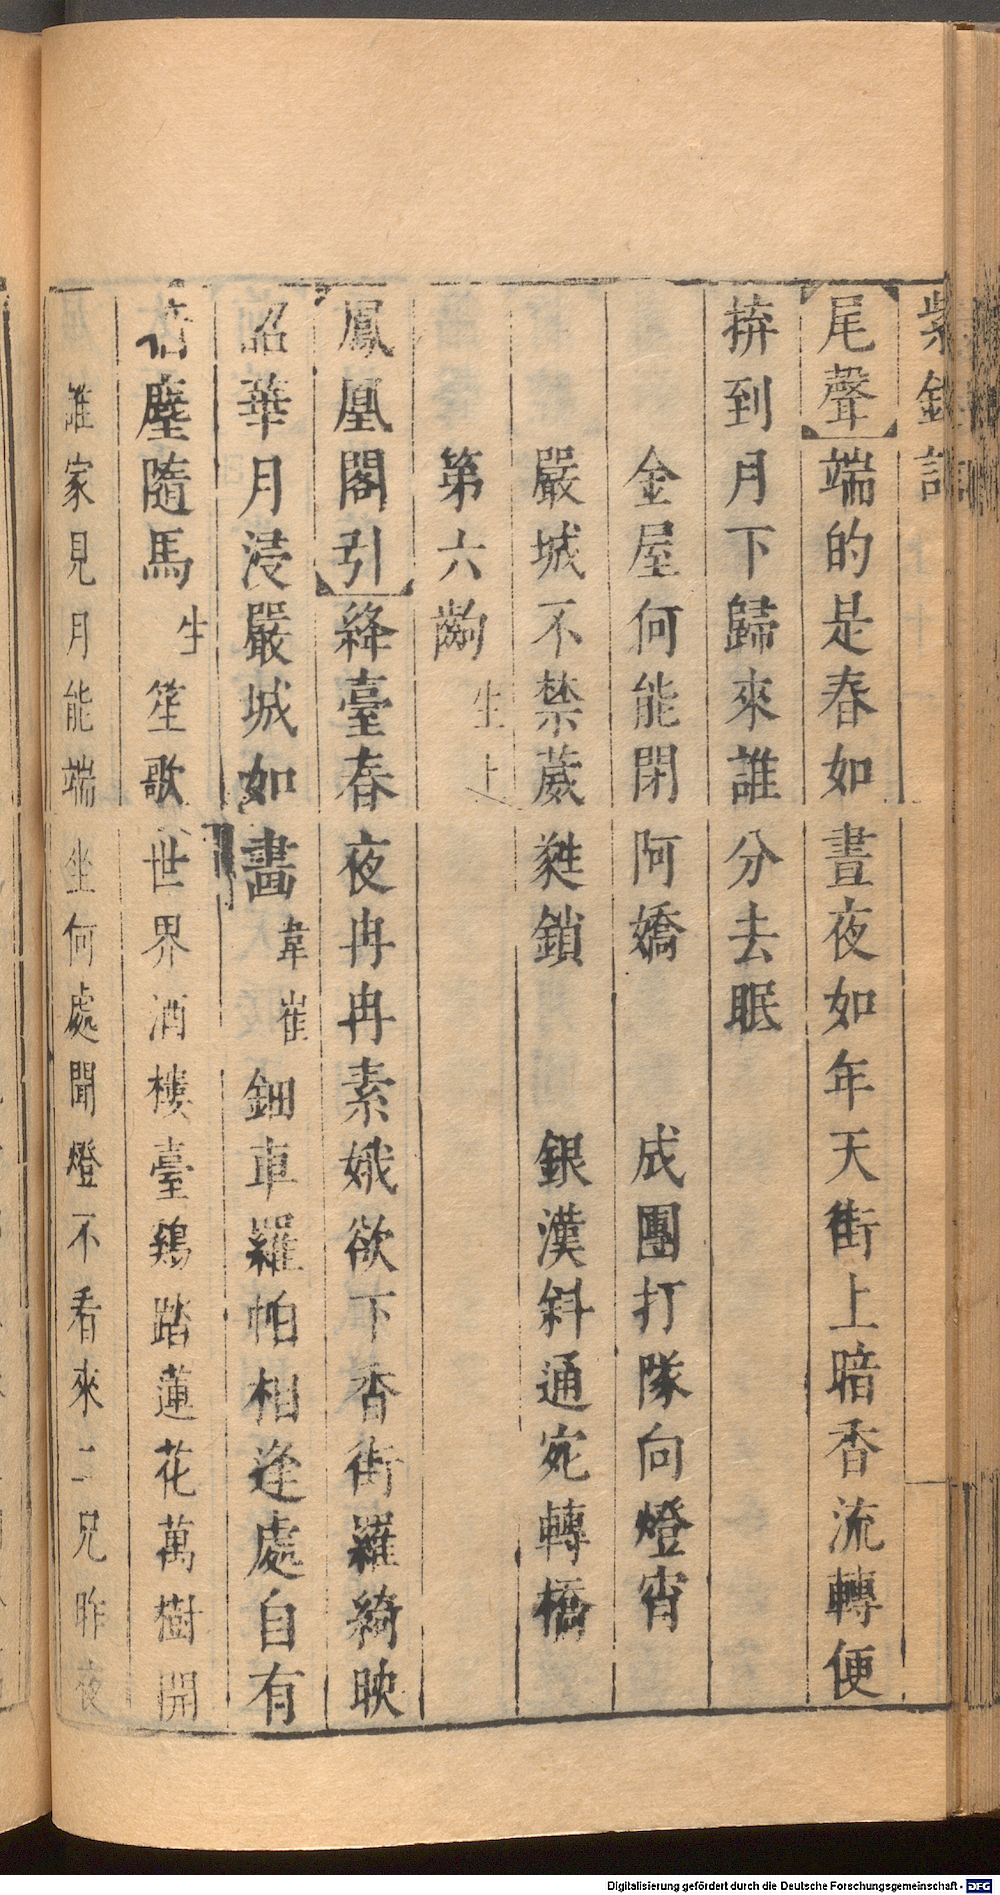 紫釵記
尾聲端的是春如晝夜如年天街上暗香流轉便
拚到月下歸來誰分去眠
金屋何能閉阿嬌 成團打隊向燈宵
嚴城不禁葳蕤鎖 銀漢斜通宛轉橋
第六齣 生上
鳳凰閣引絳臺春夜冉冉素娥欲下香街羅綺映
韶華月浸嚴城如畫 韋崔 鈿車羅帕相逢處自有
暗塵隨馬 生 笙歌世界酒樓臺鷄踏蓮花萬樹開
誰家見月能端坐何處聞燈不看來二兄昨夜
Digitalisierung gefördert durch die Deutsche Forschungsgemeinschaft - DFG